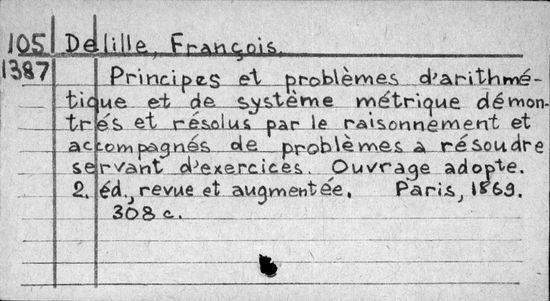 105 Delille, François.
1387 Principes et problèmes d'arithmé-
tique et de système métrique démon-
trés et résolus par le raisonnement et
accompagnés de problèmes a résoudre
servant d'exercices. Ouvrage adopte.
2. éd., revue et augmentée. Paris, 1869.
308 c.